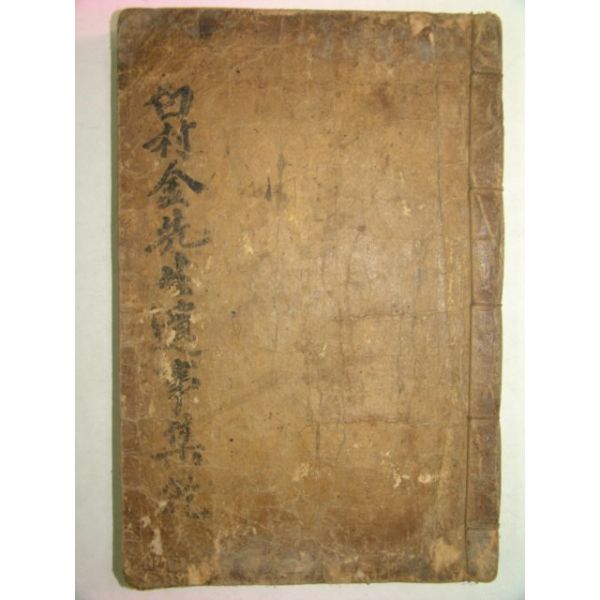 白村金先生遺事集完